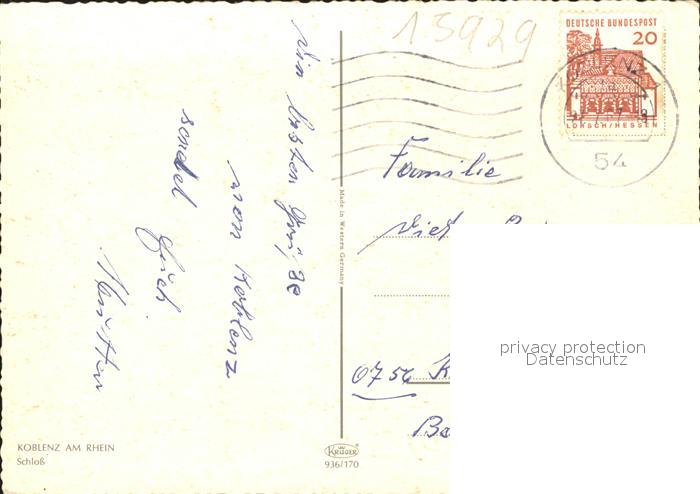 13929
DEUTSCHE BUNDESPOST
20
LORSCH/HESSEN
54
Die besten Grüße
von Koblenz
sendet Euch
Mutter
Made in Western Germany
Familie
privacy protection
Datenschutz
KOBLENZ AM RHEIN
Schloß
KRÜGER
936/170